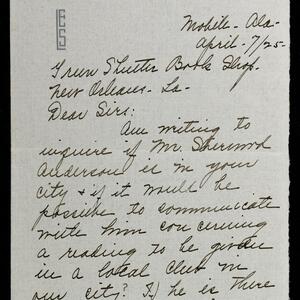 ES
Mobile - Ala -
April - 7/25 -
Green Shutter Book Shop.
New Orleans - La -
Dear Sirs:
Am writing to
inquire if Mr. Sherwood
Anderson is in your
city & if it would be
possible to communicate
with him concerning
a reading to be given
in a local club in
our city? If he is there